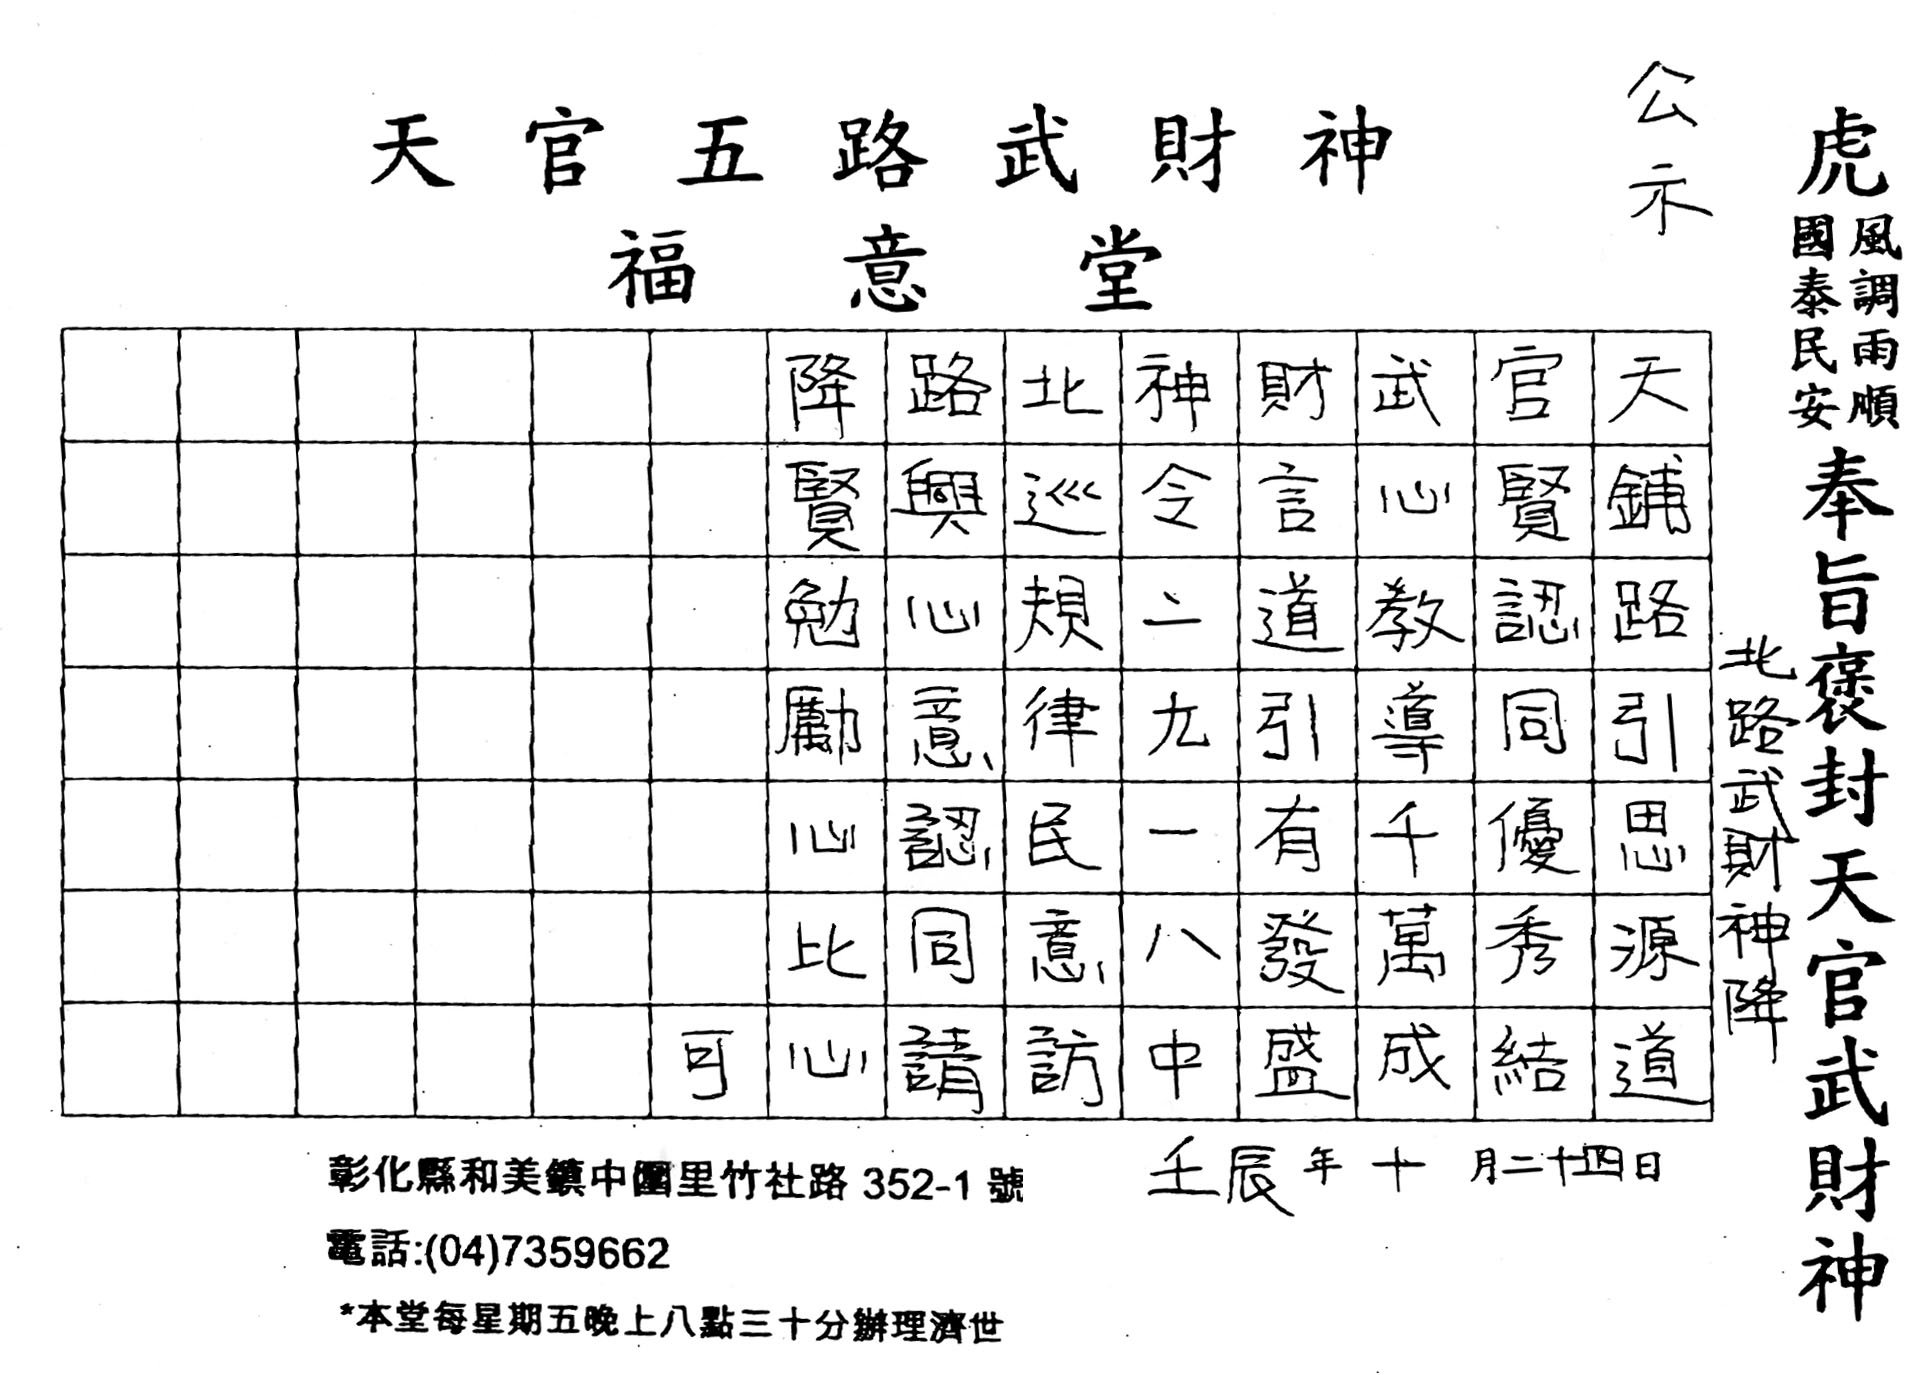 虎
風調雨順
國泰民安
奉旨褒封天官武財神
北路武財神降
公示
天官五路武財神
福意堂
天鋪路引思源道
官賢認同優秀結
武心教導千萬成
財言道引有發盛
神令二九一八中
北巡規律民意訪
路興心意認同請
降賢勉勵心比心
可
壬辰年十月二十四日
彰化縣和美鎮中圍里竹社路352-1號
電話:(04)7359662
*本堂每星期五晚上八點三十分辦理濟世